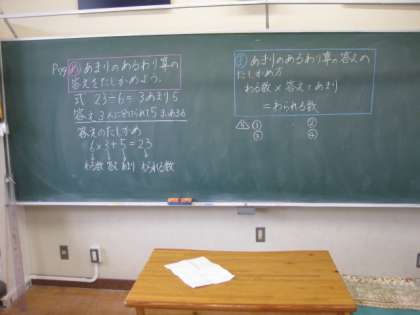 P39 め あまりのあるわり算の
答えをたしかめよう。
式 23÷6=3あまり5
答え 3人に分けられて5まいあまる
答えのたしかめ
6×3+5=23
わる数 答え あまり わられる数
ま あまりのあるわり算の答えの
たしかめ方
わる数×答え+あまり
=わられる数
△4 ① ②
③ ④